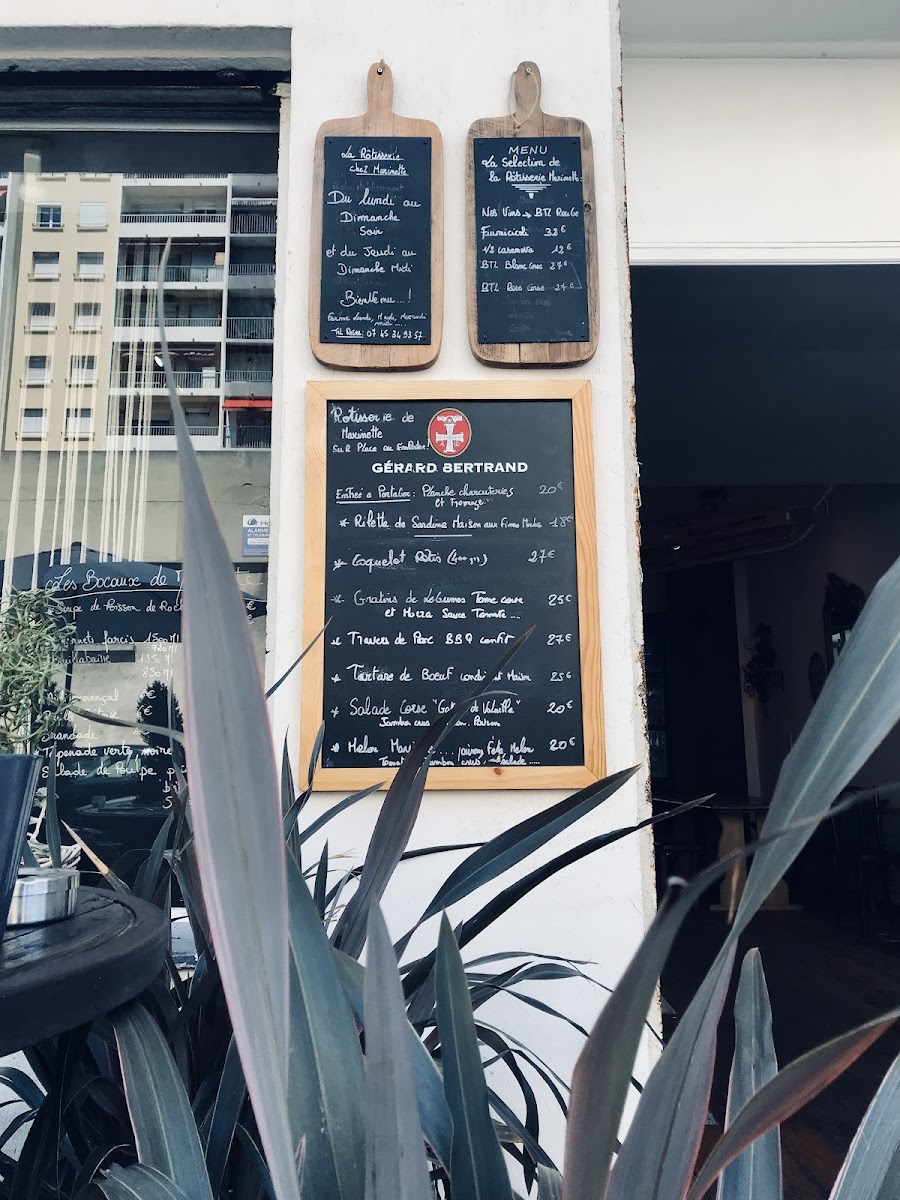 La Rôtisserie
chez Marinette
Du lundi au
Dimanche
Soir
et du Jeudi au
Dimanche Midi
Bienvenu...!
Tel Resa: 07 45 34 93 57
MENU
La Selection de
la Rôtisserie Marinette:
Nos Vins → BTL Rouge
Fiumicicoli 38€
1/2 casanova 18€
BTL Blanc Corse
BTL Ros Corse 27€
Rotisserie de
Marinette
Sur Place ou Emporter!
GÉRARD BERTRAND
Entrée a Partager: Planche charcuteries 20€
et Fromage
* Rilette de Sardine Maison aux Fines Herbes 18€
* Coquelet Rotis (400 gr) 27€
* Gratins de Légumes Tome corse 25€
et Mozza Sauce Tomate...
* Travers de Porc BBQ confit 27€
* Tartare de Boeuf condiment Maison 25€
* Salade Corse 20€
Jambon crus
* Melon Feta, Melon 20€
Tomate Jambon crus, Salade .....
Les Bocaux de
Soupe de Poisson de Roche
farcis 1500 Ml
720 Ml
Bouillabaisse
850 Ml
provençal
Tapenade verte, noire
Salade de Poulpe